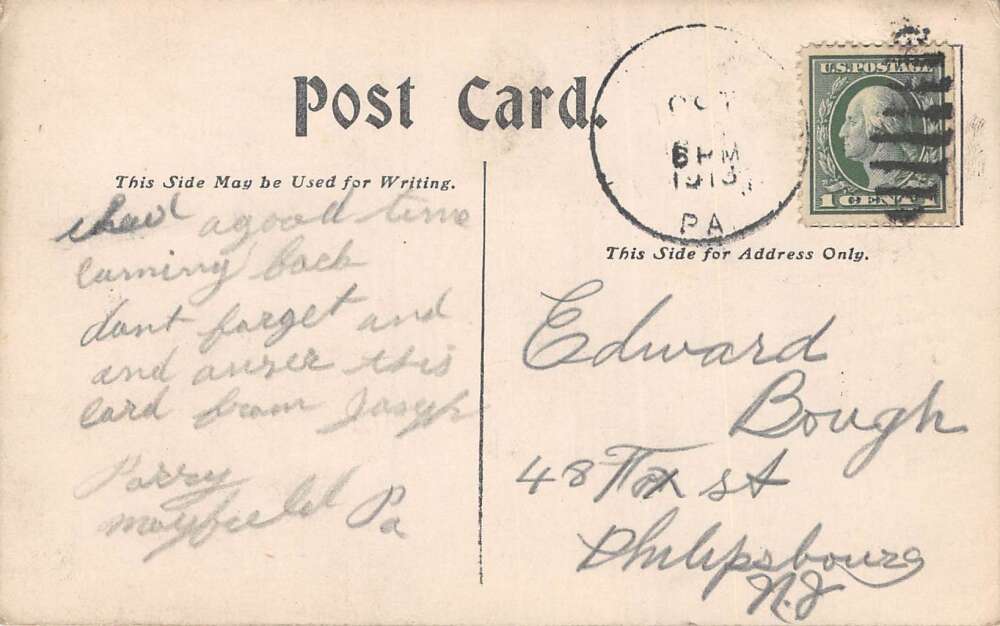 Post Card.
This Side May be Used for Writing.
This Side for Address Only.
OCT
6 PM
1913
PA
U.S. POSTAGE
1 CENT
i had a good time
comming back
dont forget and
and anser this
card from Joseph
Parry
mayfield Pa
Edward
Bough
48 Fox st
Philipsbourg
N.J